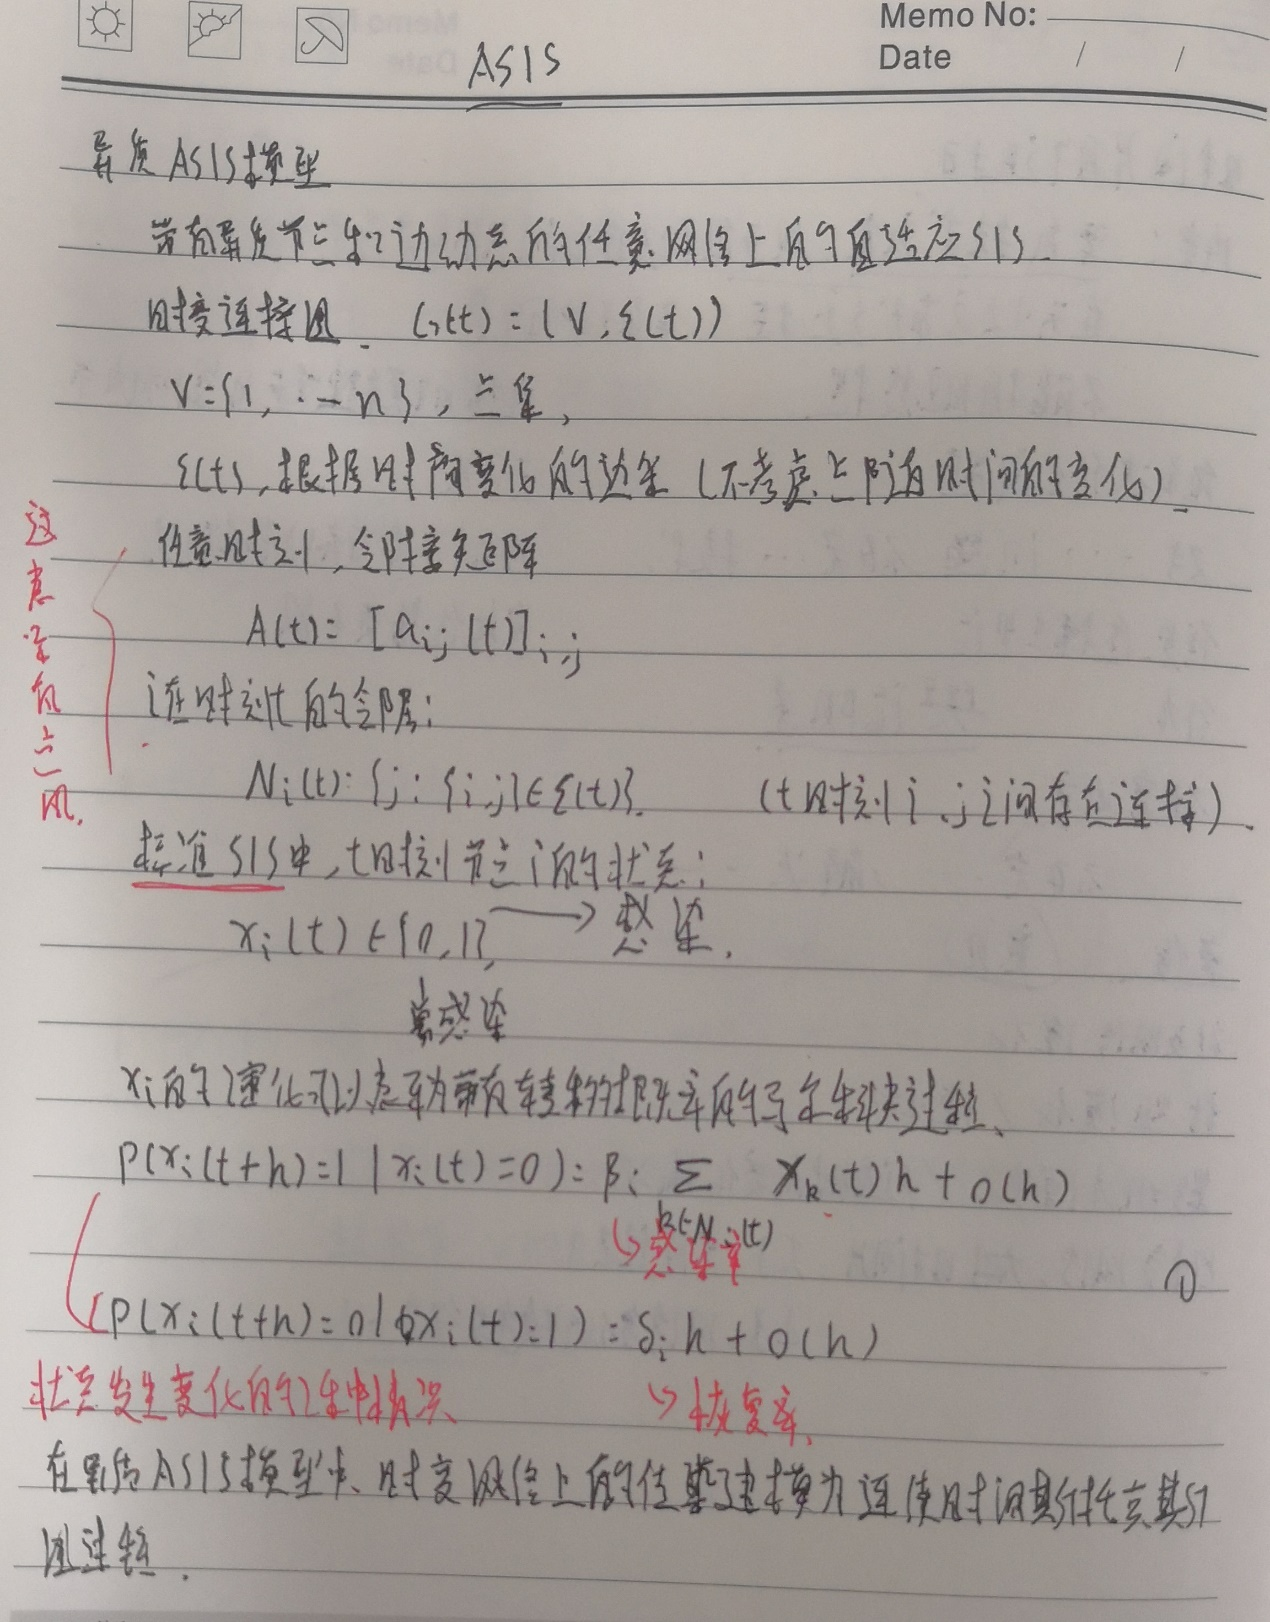 Memo No:
Date / /
ASIS
异质ASIS模型
带有异质节点和边动态的任意网络上的自适应SIS.
时变连接图. G(t) = (V, ε(t))
V={1, ... n}, 点集,
ε(t), 根据时间变化的边集 (不考虑点随时间的变化).
任意时刻, 邻接矩阵
A(t) = [a_ij(t)]_i,j
i在时刻t的邻居:
N_i(t): {j: {i,j}∈ε(t)}. (t时刻i,j之间存在连接).
这意味有点风.
标准SIS中, t时刻节点i的状态:
x_i(t)∈{0,1}, → 感染.
易感染
x_i的演化可以表示为带有转移概率的马尔科夫过程、
P(x_i(t+h)=1 | x_i(t)=0) = β_i Σ x_k(t)h + o(h)
k∈N_i(t)
↳感染率
①
P(x_i(t+h)=0 | x_i(t)=1) = δ_i h + o(h)
状态发生变化的2种情况、
↳恢复率、
在异质ASIS模型中、时变网络上的传染建模为连续时间其
图过程.